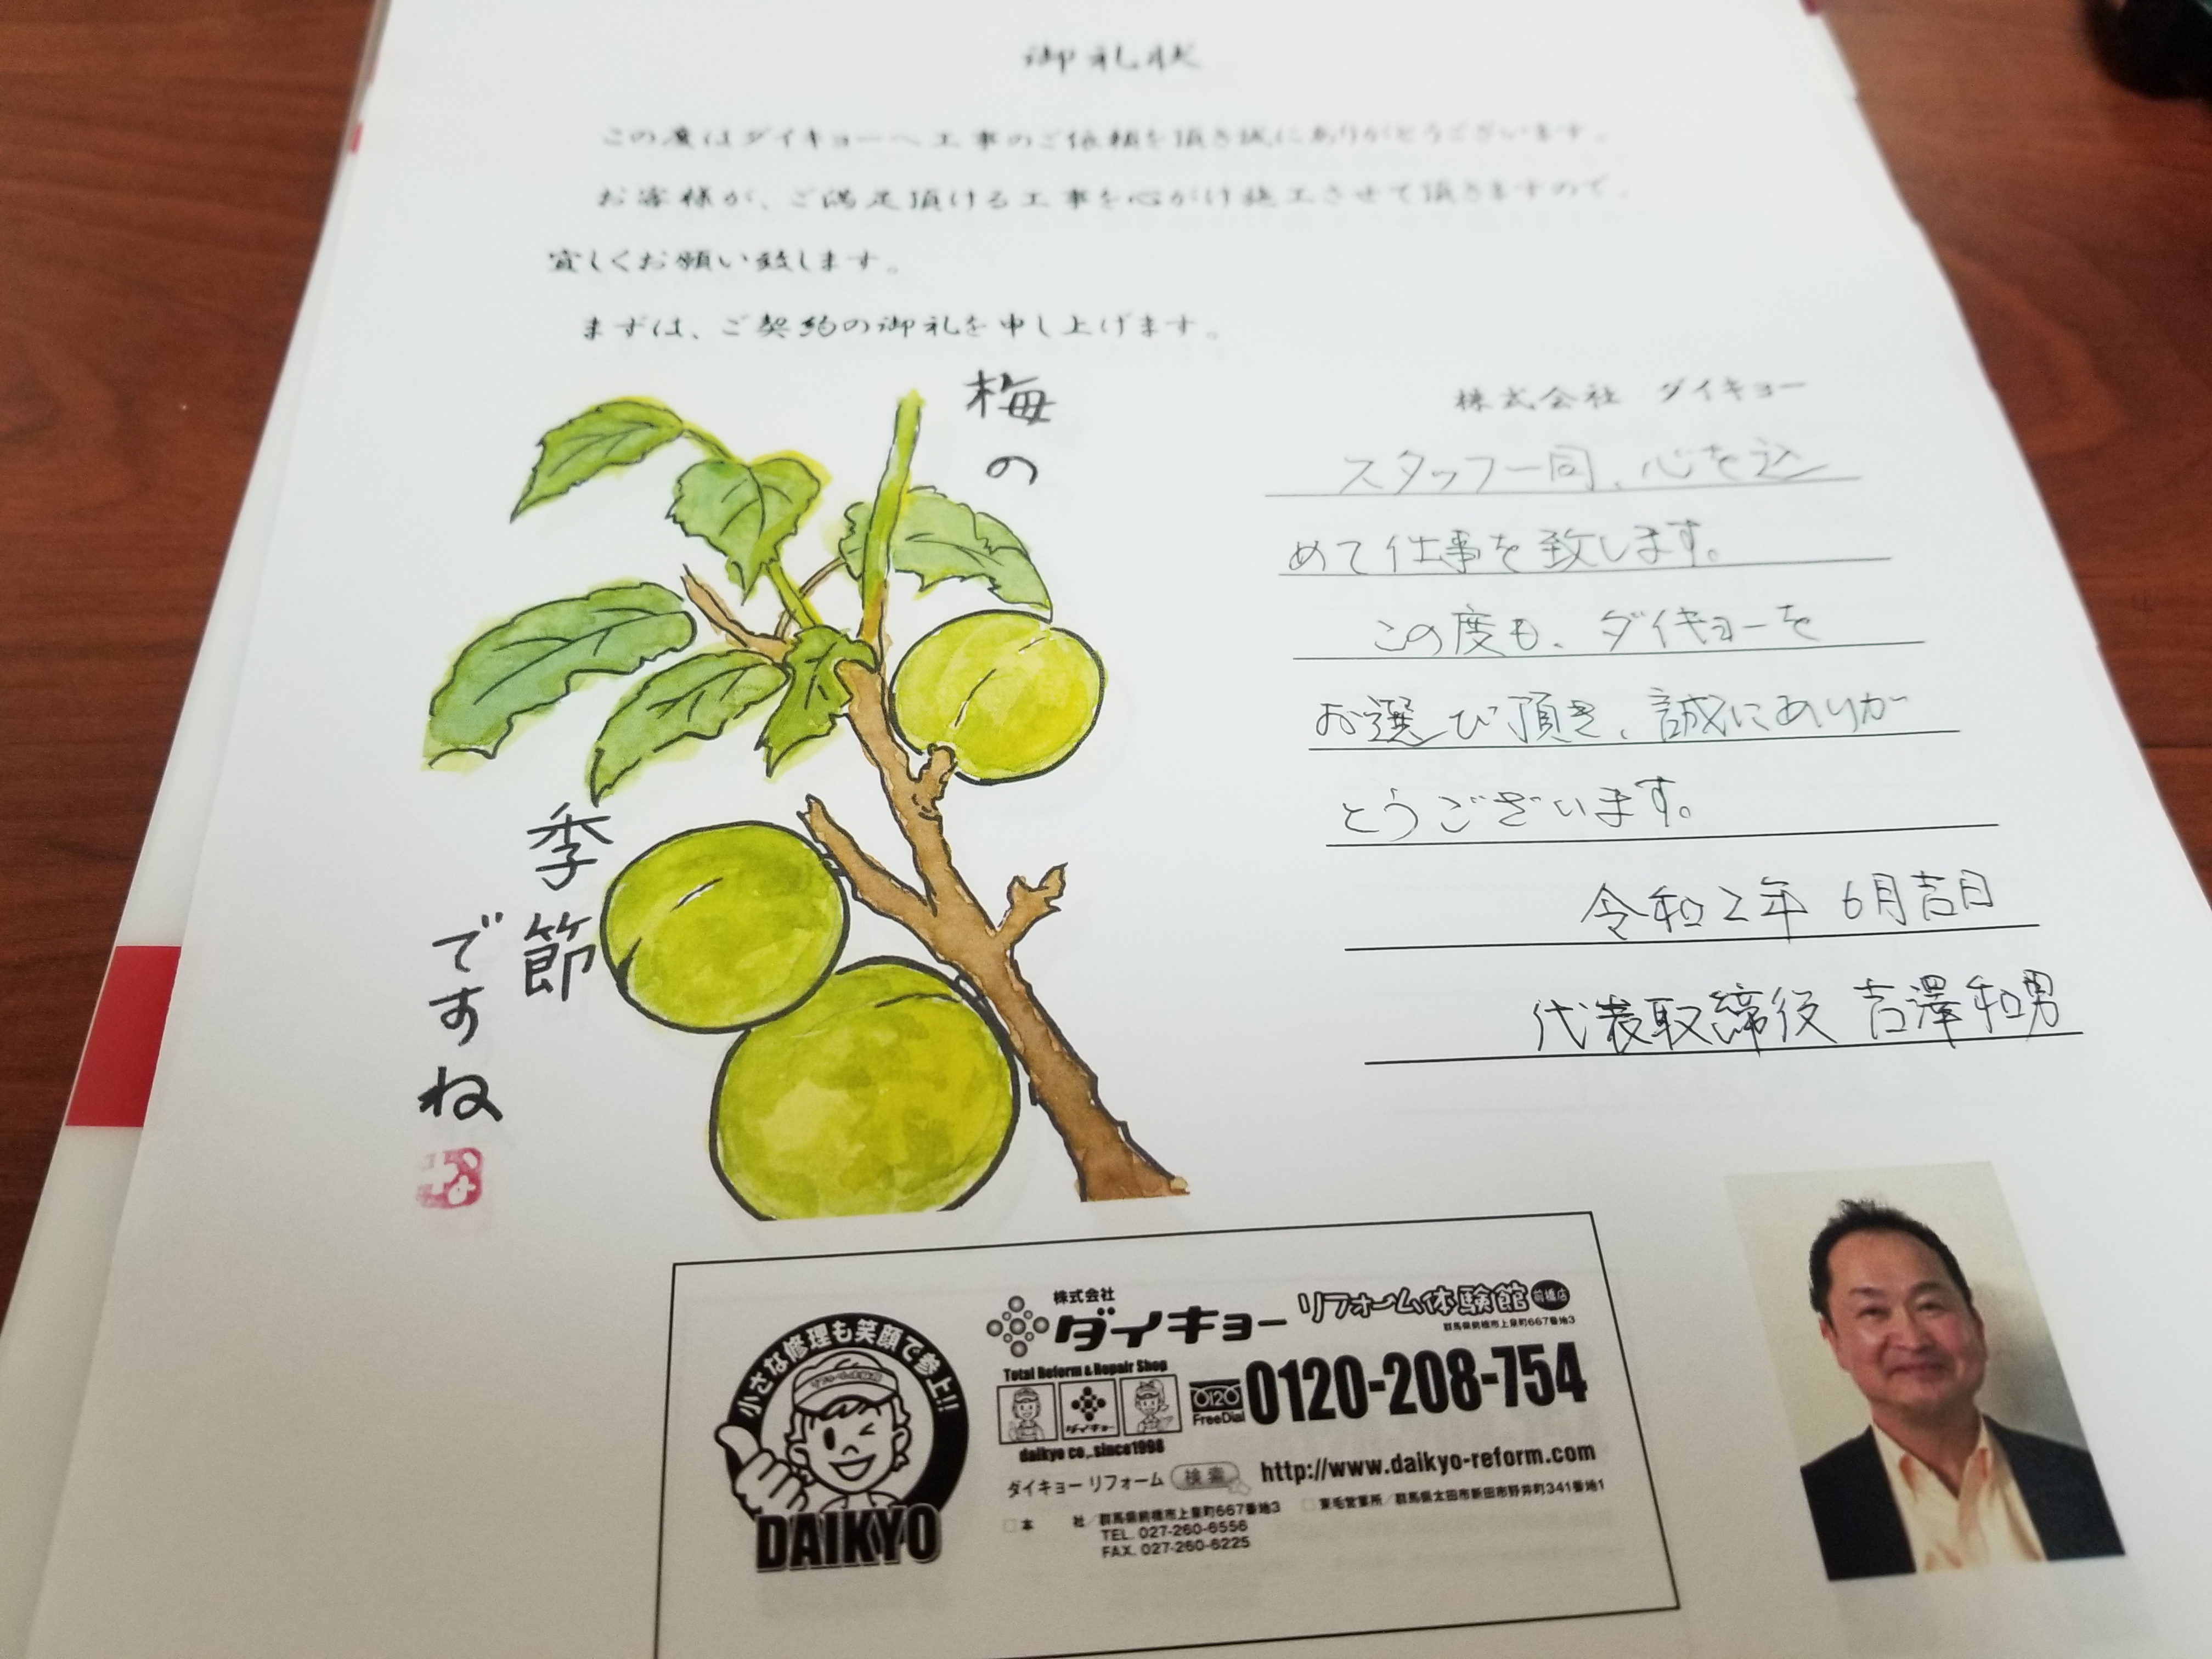 御礼状
この度はダイキョーへ工事のご依頼を頂き誠にありがとうございます。
お客様が、ご満足頂ける工事を心がけ施工させて頂きますので、
宜しくお願い致します。
まずは、ご契約の御礼を申し上げます。
梅の
季節
ですね
株式会社 ダイキョー
スタッフ一同、心を込
めて仕事を致します。
この度も、ダイキョーを
お選び頂き、誠にありが
とうございます。
令和2年 6月吉日
代表取締役 吉澤和男
小さな修理も笑顔で参上!!
DAIKYO
株式会社
ダイキョー リフォーム体験館 前橋店
群馬県前橋市上泉町667番地3
Total Reform & Repair Shop
ダイキョー
daikyo co,.since1998
0120 FreeDial 0120-208-754
ダイキョー リフォーム 検索 http://www.daikyo-reform.com
□本 社/群馬県前橋市上泉町667番地3 □東毛営業所/群馬県太田市新田市野井町341番地1
TEL. 027-260-6556
FAX. 027-260-6225